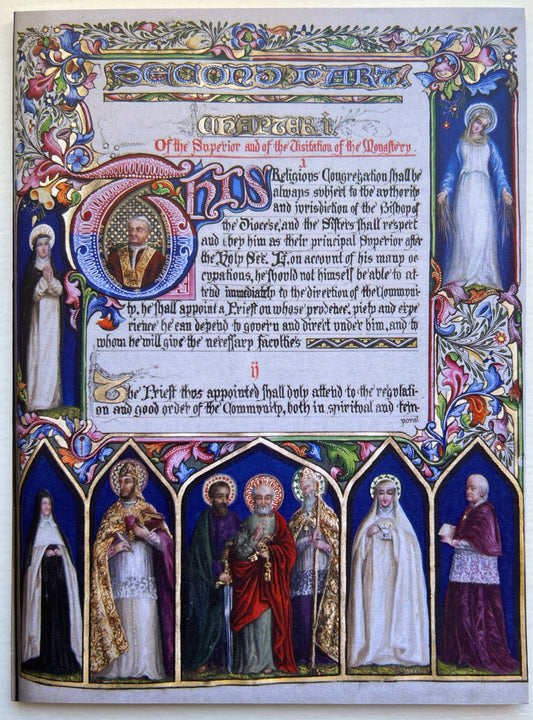 SECOND PART.
CHAPTER i.
Of the Superior and of the Visitation of the Monastery
1
THIS Religious Congregation shall be
always subject to the authority
and jurisdiction of the Bishop of
the Diocese, and the Sisters shall respect
and obey him as their principal Superior after
the Holy See. If, on account of his many oc-
cupations, he should not himself be able to at-
tend immediately to the direction of the Commvni-
ty, he shall appoint a Priest on whose prudence, piety and expe
rience he can depend to govern and direct under him, and to
whom he will give the necessary faculties
ij
The Priest thus appointed shall duly attend to the regulati-
on and good order of the Community, both in spiritual and tem
poral